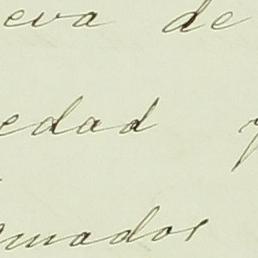 eva de
edad y
muados